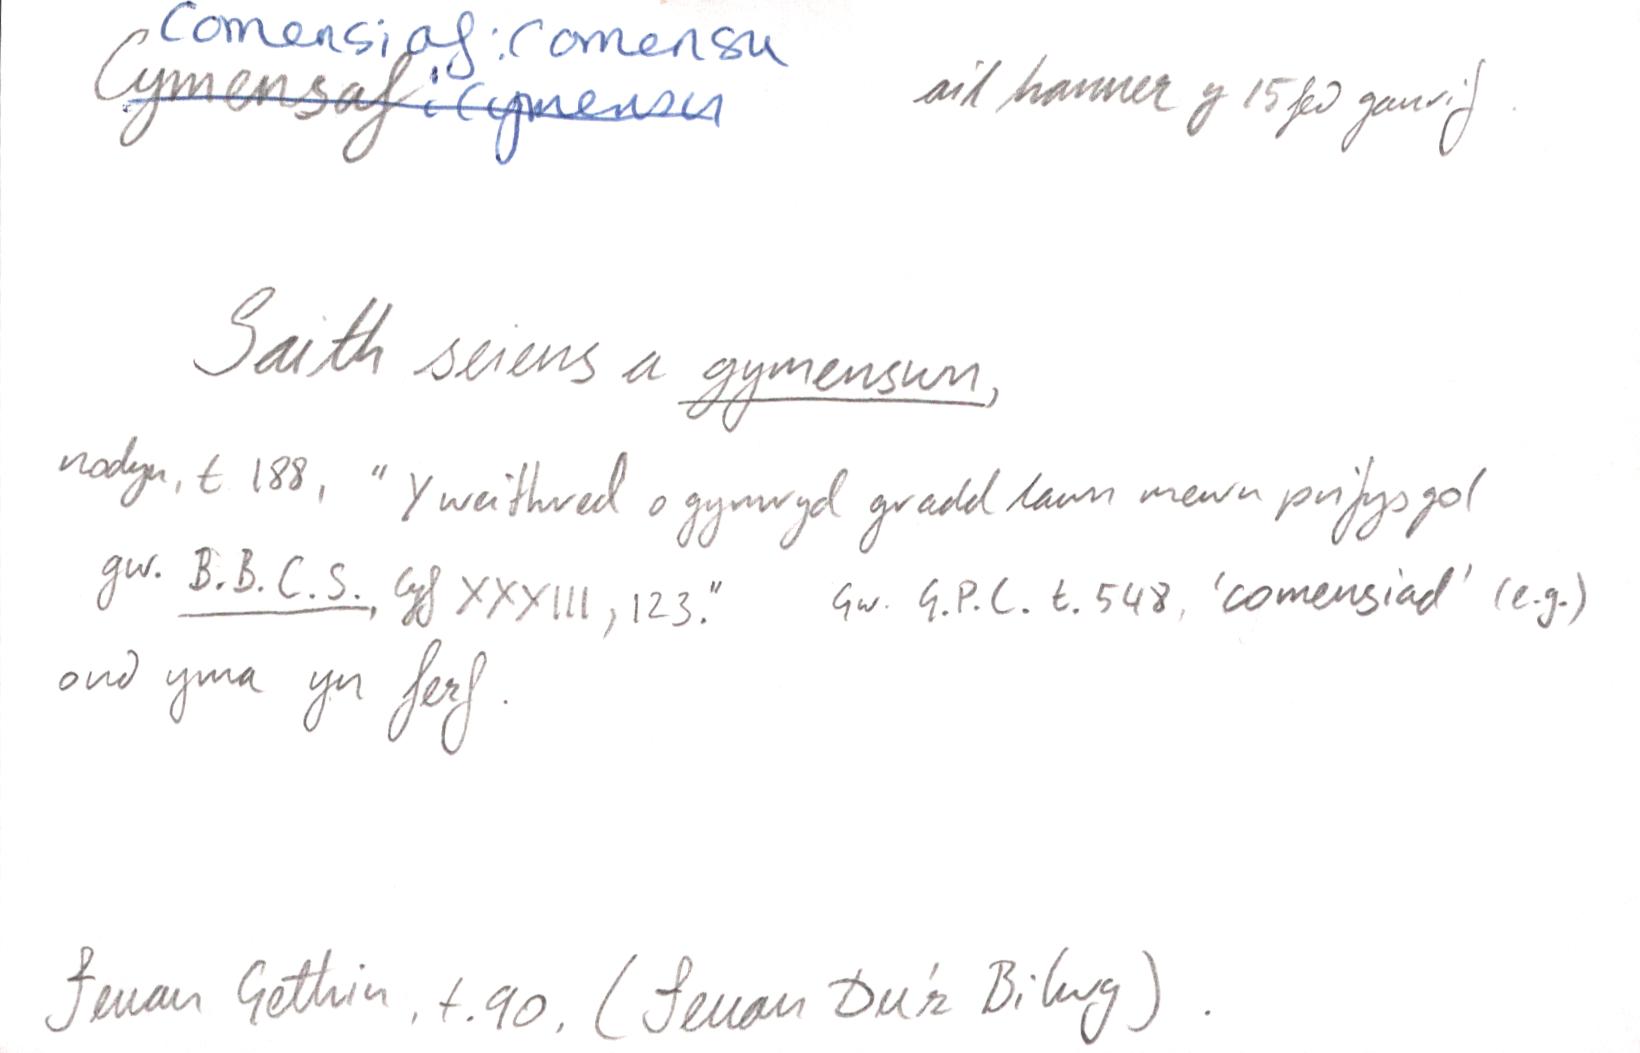 Comensiaf: Comensu
Cymensaf: Cymensu
ail hanner y 15fed ganrif.
Saith seiens a gymenswn,
nodyn, t 188, "Y weithred o gymryd gradd lawn mewn prifysgol
gw. B.B.C.S., Cyf XXXIII, 123." Gw. G.P.C. t. 548, 'comensiad' (e.g.)
ond yma yn ferf.
Ieuan Gethin, t. 90, (Ieuan Du'r Bilwg).